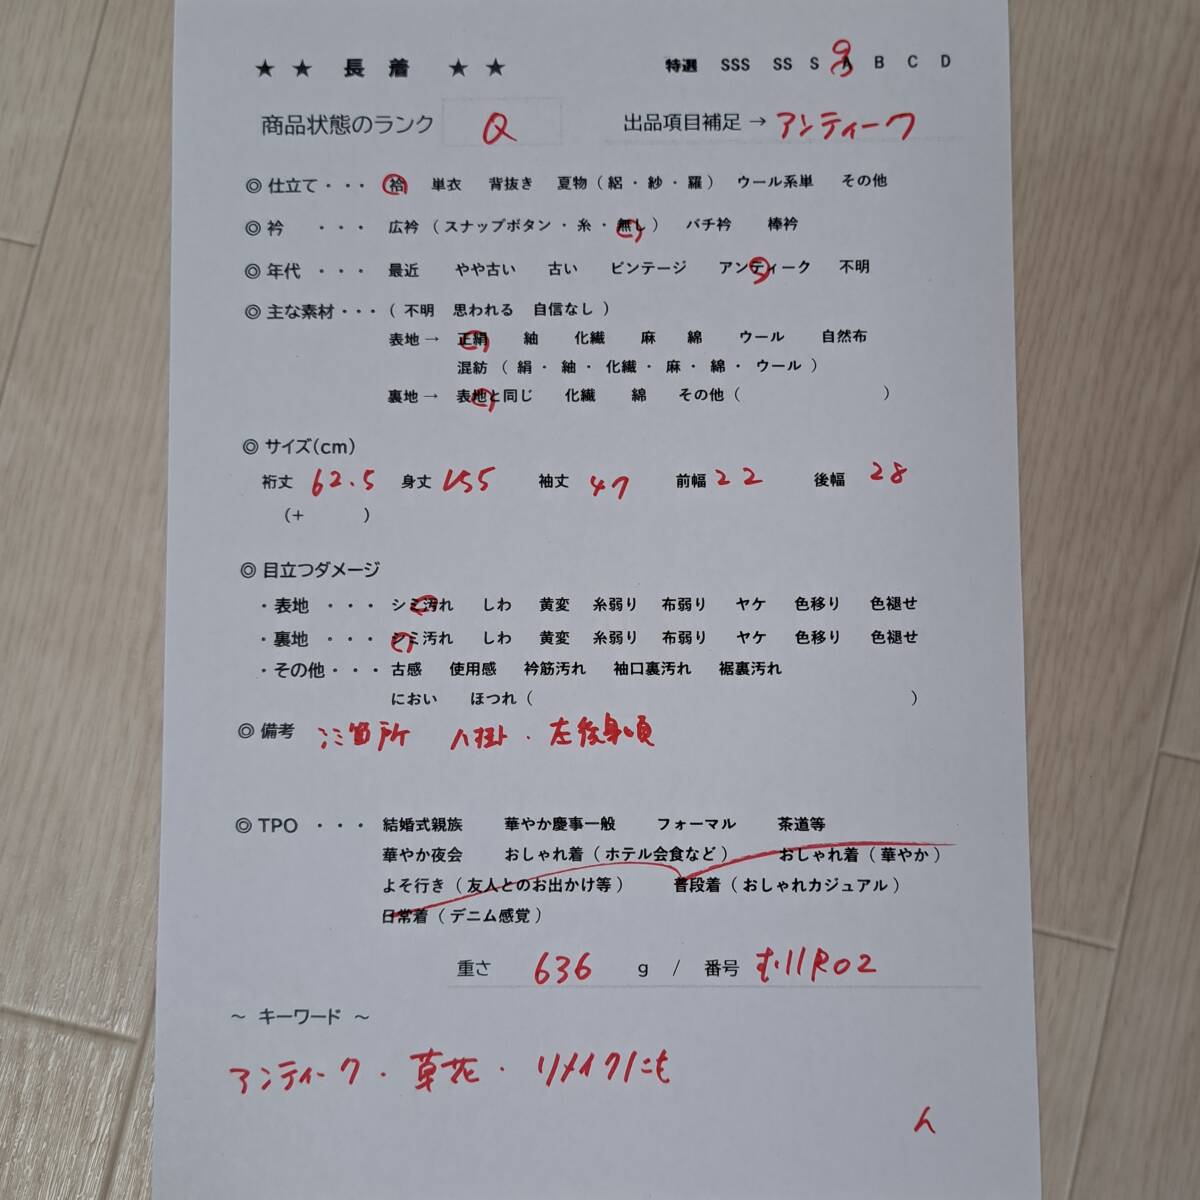 ★ ★ 長 着 ★ ★ 特選 SSS SS S A B C D
商品状態のランク Q 出品項目補足 → アンティーク
◎ 仕立て・・・ 袷 単衣 背抜き 夏物（絽・紗・羅） ウール系単 その他
◎ 衿 ・・・ 広衿（スナップボタン・糸・無し） バチ衿 棒衿
◎ 年代 ・・・ 最近 やや古い 古い ビンテージ アンティーク 不明
◎ 主な素材・・・（ 不明 思われる 自信なし ）
表地 → 正絹 紬 化繊 麻 綿 ウール 自然布
混紡（ 絹・紬・化繊・麻・綿・ウール ）
裏地 → 表地と同じ 化繊 綿 その他（ ）
◎ サイズ(cm)
裄丈 62.5 身丈 155 袖丈 47 前幅 22 後幅 28
（+ ）
◎ 目立つダメージ
・表地 ・・・ シミ汚れ しわ 黄変 糸弱り 布弱り ヤケ 色移り 色褪せ
・裏地 ・・・ シミ汚れ しわ 黄変 糸弱り 布弱り ヤケ 色移り 色褪せ
・その他・・・ 古感 使用感 衿筋汚れ 袖口裏汚れ 裾裏汚れ
におい ほつれ（ ）
◎ 備考 シミ箇所 八掛・左後身頃
◎ TPO ・・・ 結婚式親族 華やか慶事一般 フォーマル 茶道等
華やか夜会 おしゃれ着（ホテル会食など） おしゃれ着（華やか）
よそ行き（友人とのお出かけ等） 普段着（おしゃれカジュアル）
日常着（デニム感覚）
重さ 636 g / 番号 む11R02
～ キーワード ～
アンティーク・草花・リメイクにも